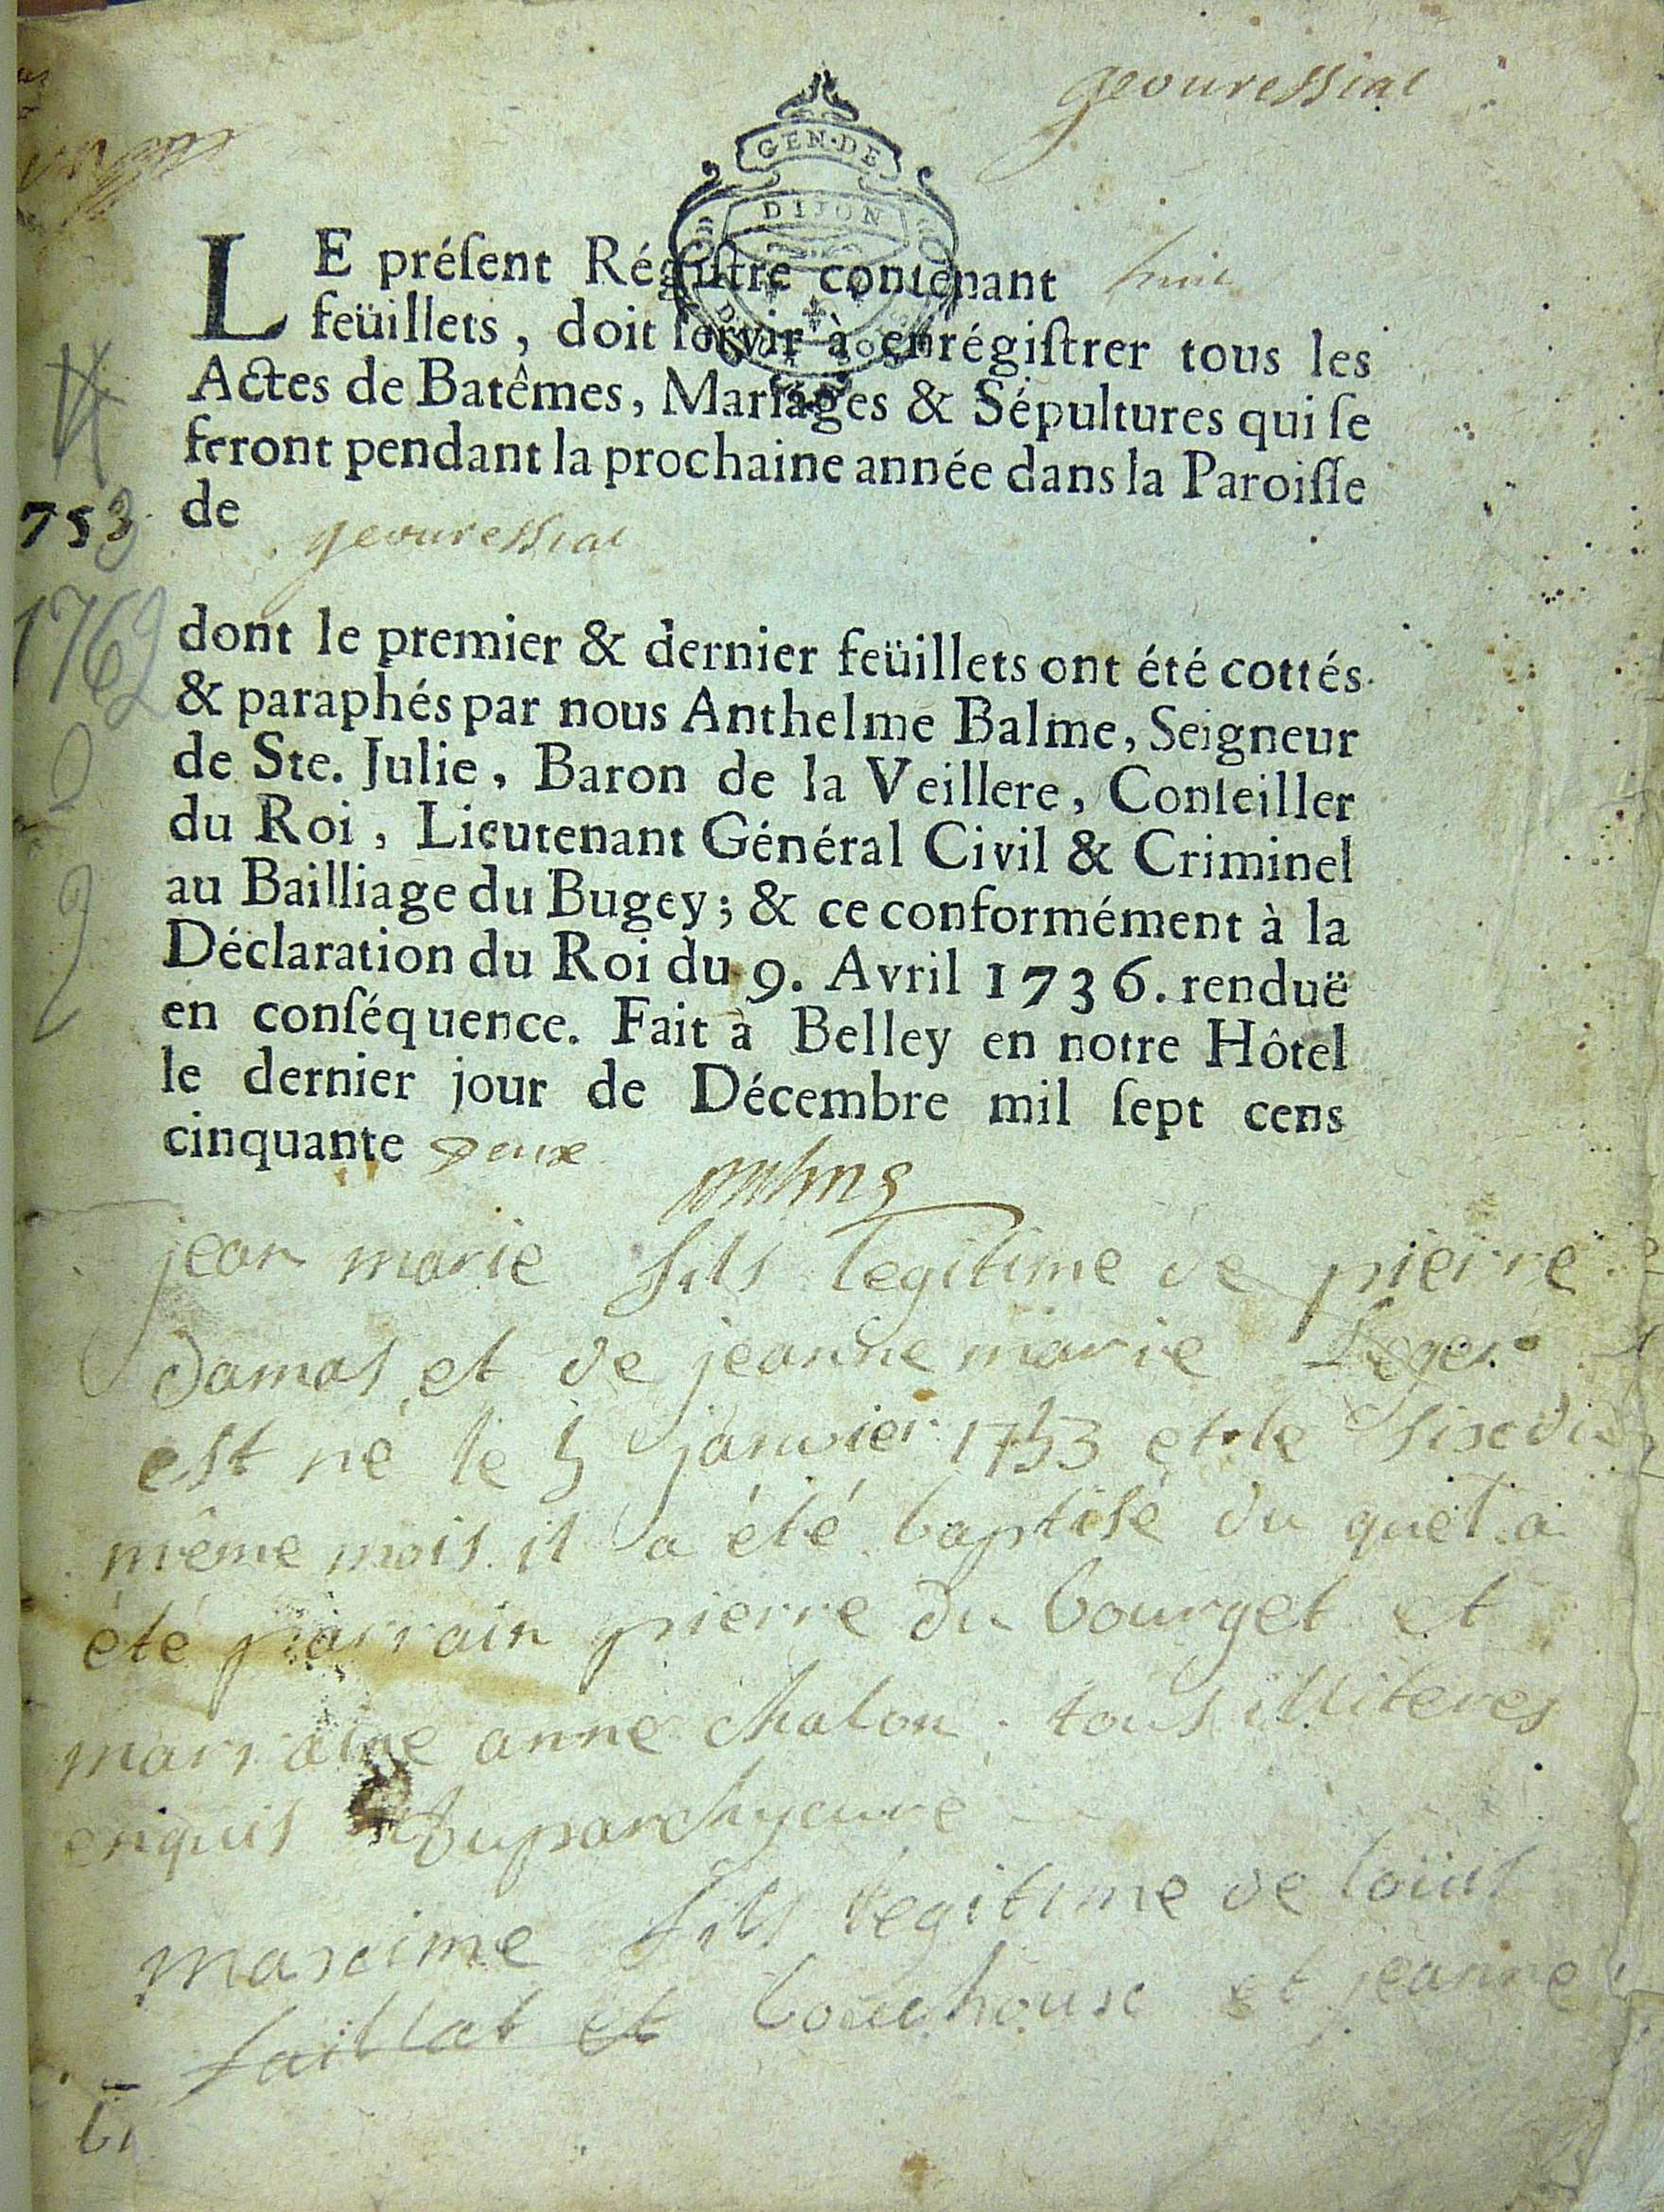 geouressiat
GEN·DE
DIJON
LE préſent Régiſtre contenant huit
feüillets, doit ſervir à enrégiſtrer tous les
Actes de Batêmes, Mariages & Sépultures qui ſe
feront pendant la prochaine année dans la Paroiſſe
753 de geouressiat
1762
dont le premier & dernier feüillets ont été cottés
& paraphés par nous Anthelme Balme, Seigneur
de Ste. Julie, Baron de la Veillere, Conſeiller
du Roi, Lieutenant Général Civil & Criminel
au Bailliage du Bugey; & ce conformément à la
Déclaration du Roi du 9. Avril 1736. renduë
en conſéquence. Fait à Belley en notre Hôtel
le dernier jour de Décembre mil ſept cens
cinquante Deux
jean marie fils legitime de pierre
Damas et de jeanne marie Leger
est né le 5 janvier 1753 et le sixe du
même mois il a été baptisé du quel a
été parrain pierre du bourget et
marraine anne chalon. tous illiteres
enquis Duparchy curé
maxime fils legitime de loüis
bouchoux et jeanne